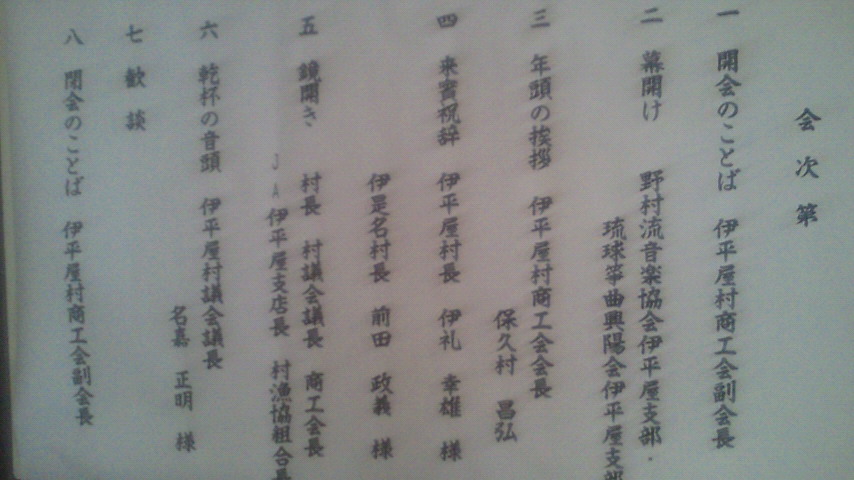 会次第
一　開会のことば　伊平屋村商工会副会長
二　幕開け　野村流音楽協会伊平屋支部・
琉球箏曲興陽会伊平屋支部
三　年頭の挨拶　伊平屋村商工会会長
保久村　昌弘
四　来賓祝辞　伊平屋村長　伊礼　幸雄　様
伊是名村長　前田　政義　様
五　鏡開き　村長　村議会議長　商工会長
JA伊平屋支店長　村漁協組合長
六　乾杯の音頭　伊平屋村議会議長
名嘉　正明　様
七　歓談
八　閉会のことば　伊平屋村商工会副会長